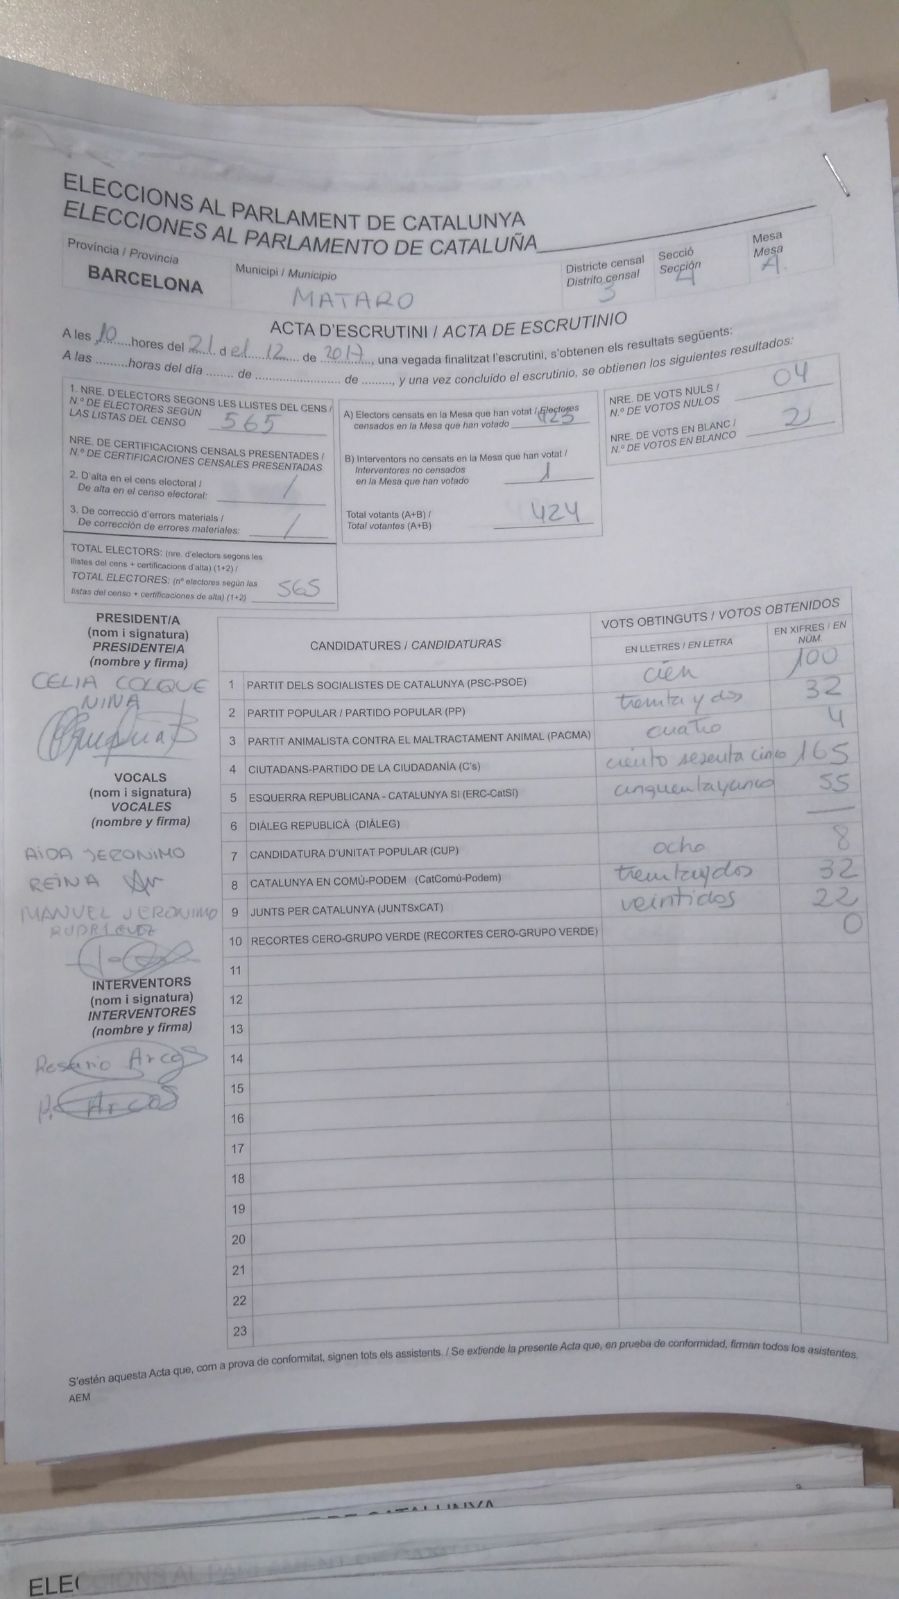 ELECCIONS AL PARLAMENT DE CATALUNYA
ELECCIONES AL PARLAMENTO DE CATALUÑA
Província / Provincia
BARCELONA
Municipi / Municipio
MATARO
Districte censal
Distrito censal
3
Secció
Sección
4
Mesa
Mesa
A.
ACTA D'ESCRUTINI / ACTA DE ESCRUTINIO
A les 10 hores del 21 d el 12 de 2017, una vegada finalitzat l'escrutini, s'obtenen els resultats següents:
A las ........horas del día ....... de ....................... de ........, y una vez concluido el escrutinio, se obtienen los siguientes resultados:
1. NRE. D'ELECTORS SEGONS LES LLISTES DEL CENS /
N.º DE ELECTORES SEGÚN
LAS LISTAS DEL CENSO 565
NRE. DE CERTIFICACIONS CENSALS PRESENTADES /
N.º DE CERTIFICACIONES CENSALES PRESENTADAS
2. D'alta en el cens electoral /
De alta en el censo electoral: /
3. De correcció d'errors materials /
De corrección de errores materiales: /
TOTAL ELECTORS: (nre. d'electors segons les
llistes del cens + certificacions d'alta) (1+2) /
TOTAL ELECTORES: (nº electores según las
listas del censo + certificaciones de alta) (1+2) 565
A) Electors censats en la Mesa que han votat / Electores
censados en la Mesa que han votado 423
B) Interventors no censats en la Mesa que han votat /
Interventores no censados
en la Mesa que han votado 1
Total votants (A+B) /
Total votantes (A+B) 424
NRE. DE VOTS NULS /
N.º DE VOTOS NULOS 04
NRE. DE VOTS EN BLANC /
N.º DE VOTOS EN BLANCO 2
PRESIDENT/A
(nom i signatura)
PRESIDENTE/A
(nombre y firma)
CELIA COLQUE
NINA
VOCALS
(nom i signatura)
VOCALES
(nombre y firma)
AIDA JERONIMO
REINA
MANUEL JERONIMO
RUDRIGUEZ
INTERVENTORS
(nom i signatura)
INTERVENTORES
(nombre y firma)
Rosario Arcos
P. Arcos
CANDIDATURES / CANDIDATURAS
VOTS OBTINGUTS / VOTOS OBTENIDOS
EN LLETRES / EN LETRA
EN XIFRES / EN NÚM.
1 PARTIT DELS SOCIALISTES DE CATALUNYA (PSC-PSOE) cien 100
2 PARTIT POPULAR / PARTIDO POPULAR (PP) treinta y dos 32
3 PARTIT ANIMALISTA CONTRA EL MALTRACTAMENT ANIMAL (PACMA) cuatro 4
4 CIUTADANS-PARTIDO DE LA CIUDADANÍA (C's) ciento sesenta cinco 165
5 ESQUERRA REPUBLICANA - CATALUNYA SÍ (ERC-CatSí) cinquentaycinco 55
6 DIÀLEG REPUBLICÀ (DIÀLEG) —
7 CANDIDATURA D'UNITAT POPULAR (CUP) ocho 8
8 CATALUNYA EN COMÚ-PODEM (CatComú-Podem) treintaydos 32
9 JUNTS PER CATALUNYA (JUNTSxCAT) veintidos 22
10 RECORTES CERO-GRUPO VERDE (RECORTES CERO-GRUPO VERDE) 0
11
12
13
14
15
16
17
18
19
20
21
22
23
S'estén aquesta Acta que, com a prova de conformitat, signen tots els assistents. / Se extiende la presente Acta que, en prueba de conformidad, firman todos los asistentes.
AEM
ELE